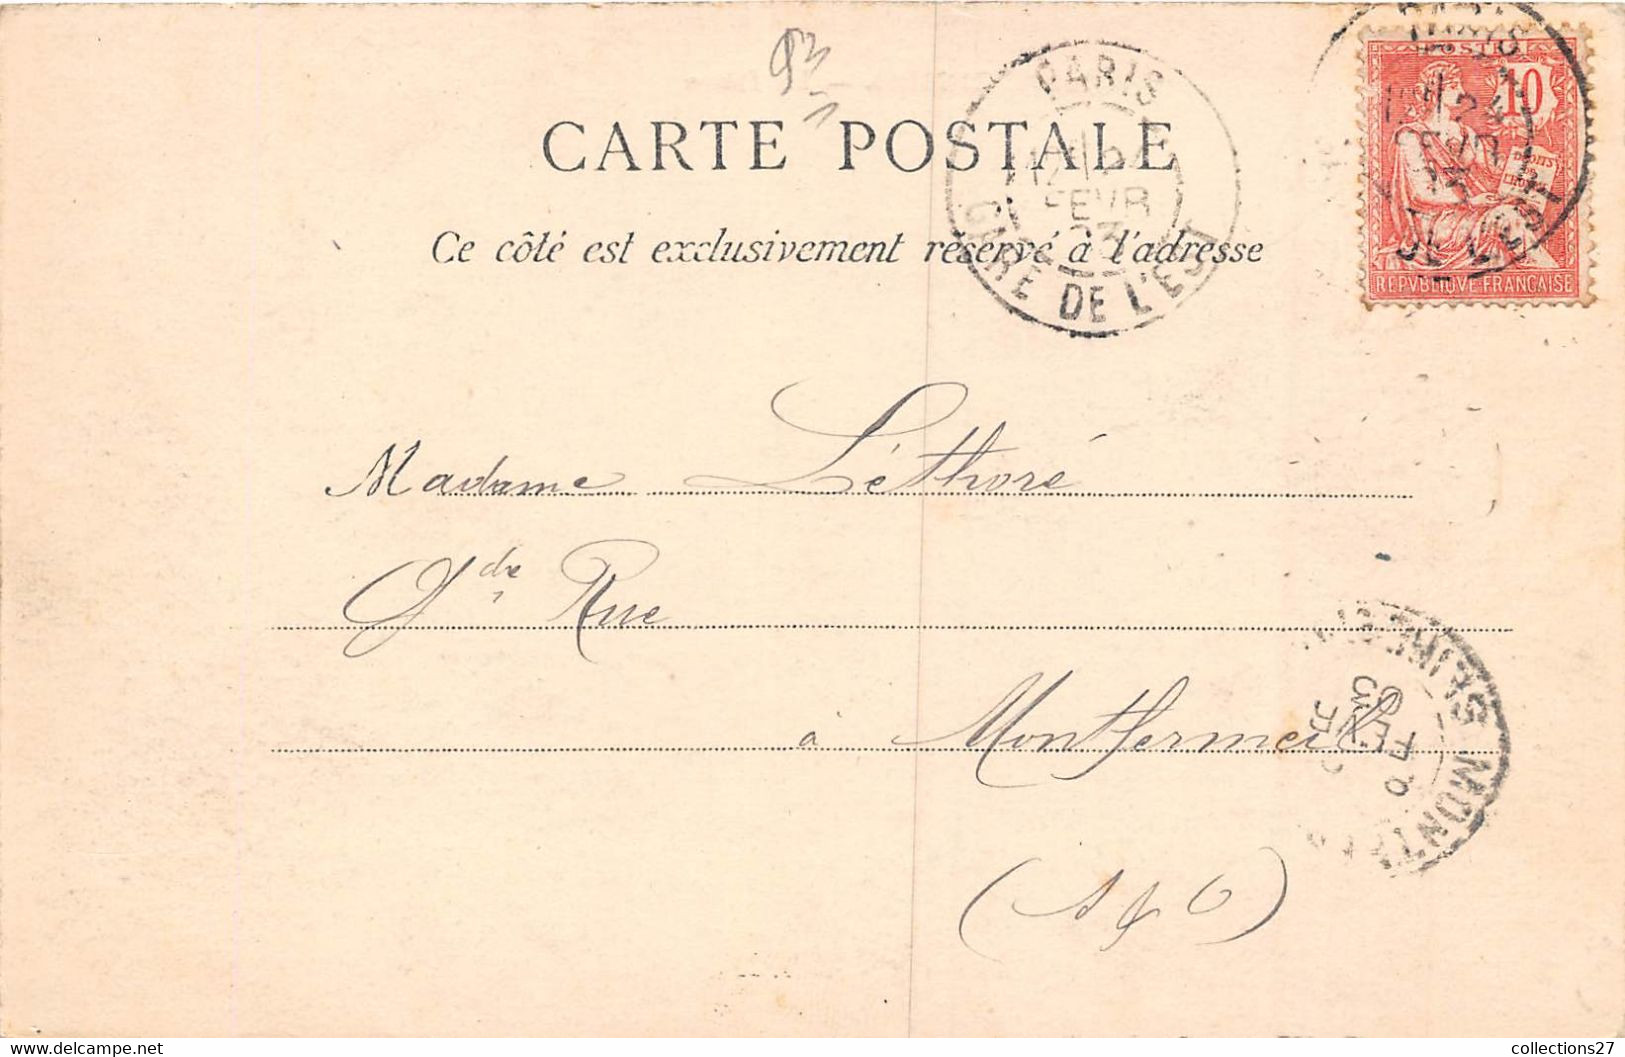 93
CARTE POSTALE
Ce côté est exclusivement réservé à l'adresse
PARIS
FEVR
03
GARE DE L'EST
POSTE
10
DROITS
DE
L'HOMME
REPVBLIQVE FRANÇAISE
Madame Léthoré
Gde Rue
à Montfermeil
(S & O)
collections27